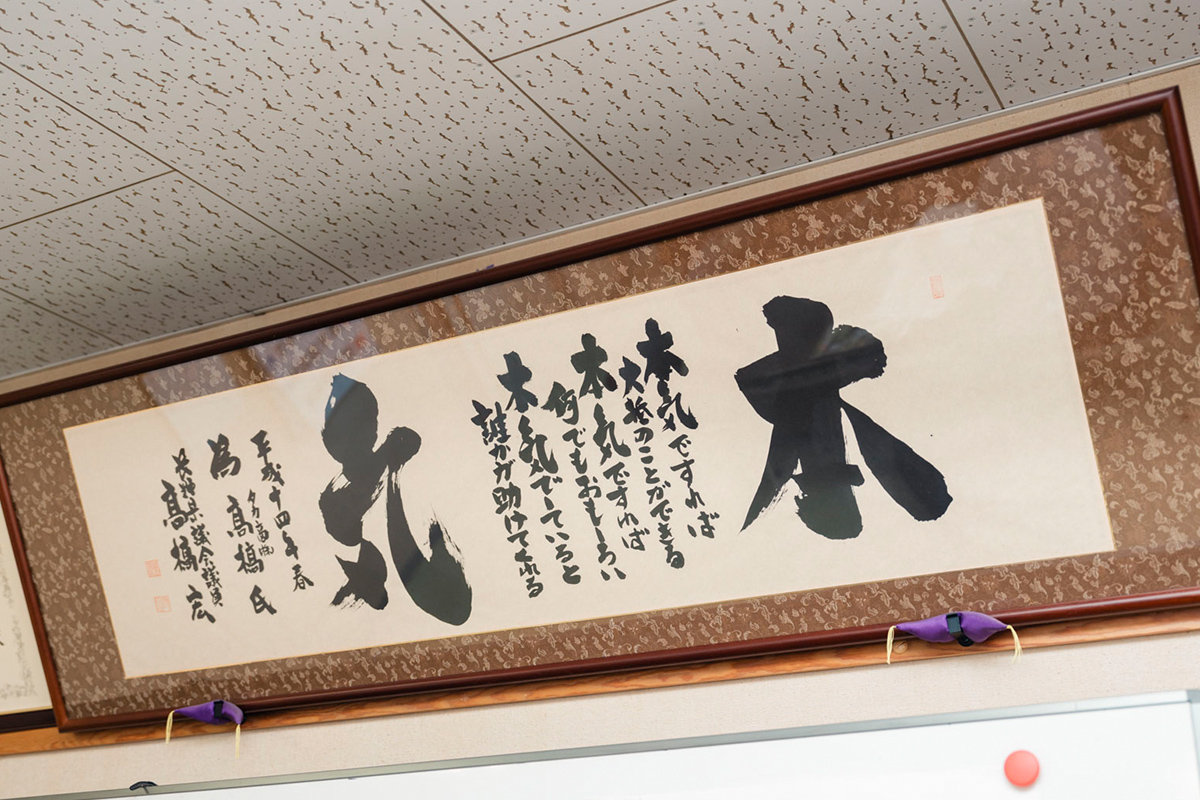 本
本気ですれば
大抵のことができる
本気ですれば
何でもおもしろい
本気でしていると
誰かが助けてくれる
気
平成十四年春
為 髙橋氏
県議会議員
髙橋 宏